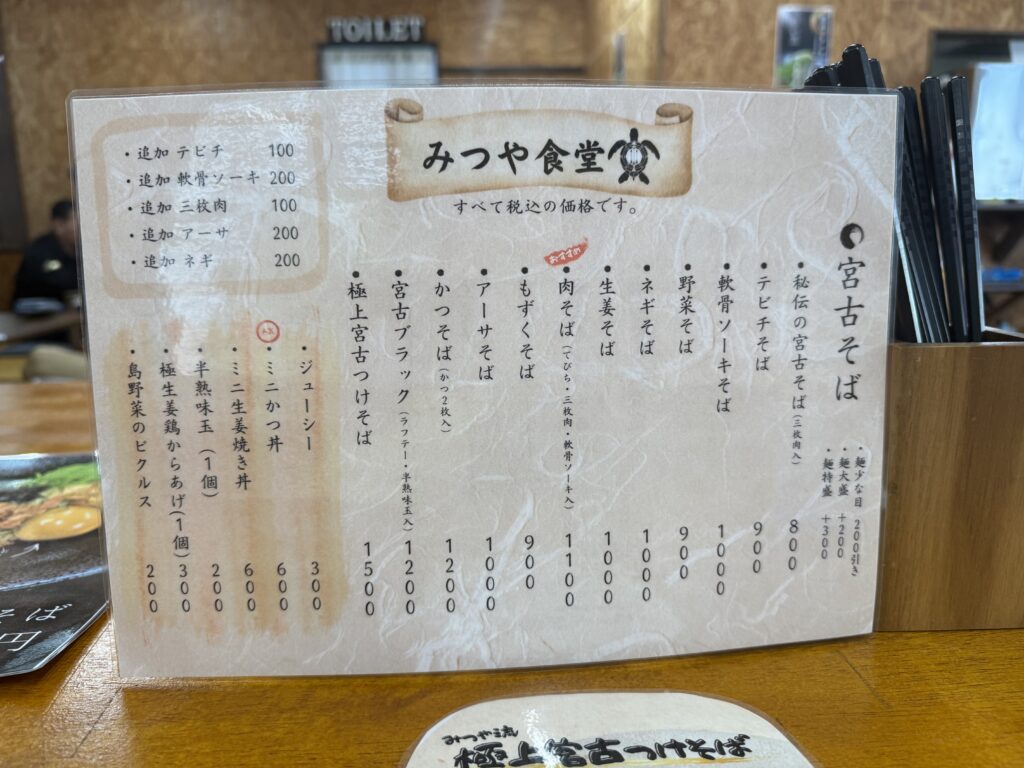 TOILET
みつや食堂
すべて税込の価格です。
・追加 テビチ 100
・追加 軟骨ソーキ 200
・追加 三枚肉 100
・追加 アーサ 200
・追加 ネギ 200
宮古そば
・麺少な目 200引き
・麺大盛 +200
・麺特盛 +300
・秘伝の宮古そば(三枚肉入) 800
・テビチそば 900
・軟骨ソーキそば 1000
・野菜そば 900
・ネギそば 1000
・生姜そば 1000
おすすめ
・肉そば(てびち・三枚肉・軟骨ソーキ入) 1100
・もずくそば 900
・アーサそば 1000
・かつそば(かつ2枚入) 1200
・宮古ブラック(ラフテー・半熟味玉入) 1200
・極上宮古つけそば 1500
・ジューシー 300
人気
・ミニかつ丼 600
・ミニ生姜焼き丼 600
・半熟味玉(1個) 200
・極生姜鶏からあげ(1個) 300
・島野菜のピクルス 200
そば
円
みつや流
極上宮古つけそば